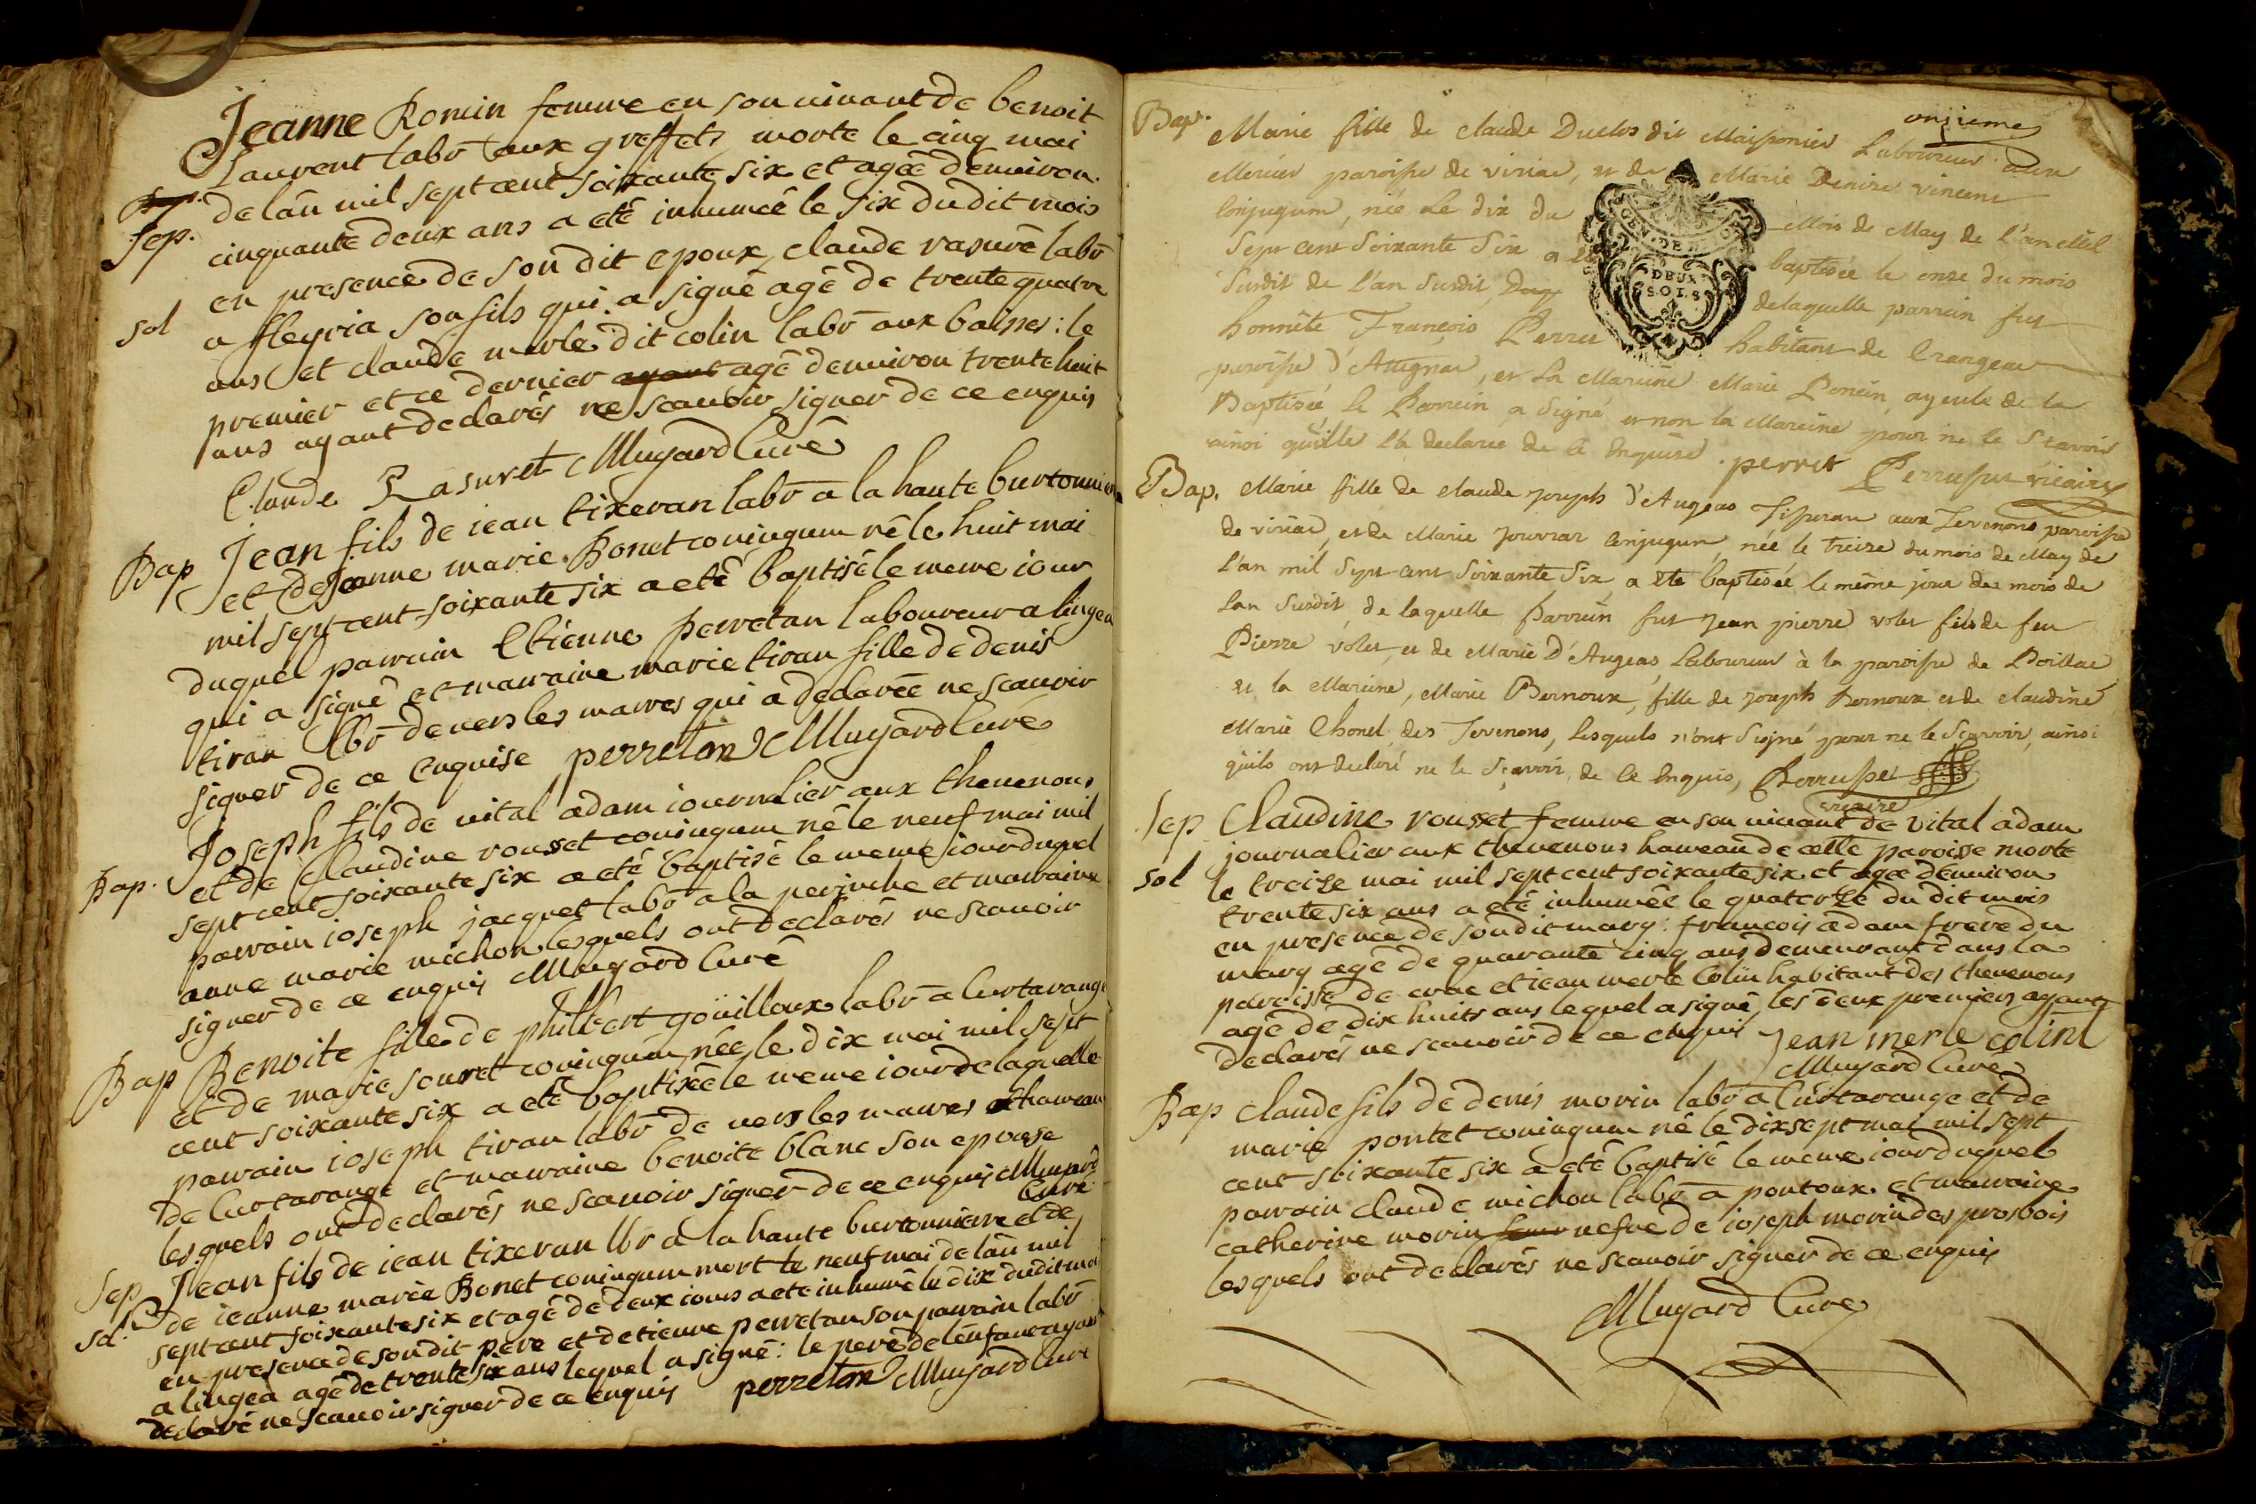 Jeanne Romin femme en son vivant de benoit
Laurent labr aux greffets morte le cinq mai
Sep. de lan mil sept cent soixante six et agée denviron
cinquante deux ans a eté inhumée le six du dit mois
en presence de son dit epoux, claude rasuré labr
sol a fleyria son fils qui a signé agé de trente quatre
ans et claude merle dit colin labr aux baisses: le
premier et ce dernier ayant agé denviron trente huit
ans ayant declarés ne scavoir signer de ce enquis
Claude Rasuret Mugard Curé
Bap Jean fils de iean tixeran labr a la haute burtonniere
et de Jeanne marie Bonet coniugum né le huit mai
mil sept cent soixante six a eté baptisé le meme iour
duquel parrain Etienne perretan laboureur a lingea
qui a signé et marraine marie tiran fille de denis
tiran lbr de vers les mares qui a declarée ne scavoir
signer de ce enquise perretan Mugard Curé
Bap. Joseph fils de vital adam iournalier aux thevenons
et de Claudine rousset coniugum né le neuf mai mil
sept cent soixante six a eté baptisé le meme iour duquel
parrain ioseph jacquet labr a la perrine et marraine
anne marie michon lesquels ont declarés ne scavoir
signer de ce enquis Mugard Curé
Bap Benoite fille de philbert goüilloux labr a Curtarange
et de marie souret coniugum née le dix mai mil sept
cent soixante six a eté baptisée le meme iour de laquelle
parrain ioseph tiran labr de vers les mares hameau
de Curtarange et marraine benoite blanc son epouse
lesquels ont declarés ne scavoir signer de ce enquis Mugard
Curé
Sep Jean fils de iean tixeran lbr a la haute burtonniere et de
sol. de ieanne marie Bonet coniugum mort le neuf mai de lan mil
sept cent soixante six et agé de deux iours a eté inhumé le dix dudit moi
en presence de son dit pere et detienne perretan son parrain labr
a lingea agé de trente six ans lequel a signé: le pere de lenfant ayant
declaré ne scavoir signer de ce enquis perretan Mugard Curé
onzieme
Bap. Marie fille de claude Duclos dit Maisonier Laboureur
Mercier paroisse de viriac, et de Marie Denise vincent
Conjugum, née Le dix du Mois de May de L'an Mil
Sept cent Soixante Six a été baptisée le onze du mois
GEN. DE
DEUX
SOLS
Susdit de L'an Susdit, de laquelle parrain fut
honnête François Perret habitant de Crangeac
paroisse d'Attignac, et La Mareine Marie Poncin, ayeule de la
Baptisée le Parrein a Signé et non la Mareine pour ne le Scavoir
ainsi quelle l'a declaree de ce Enquise. perret Perruset vicaire
Bap. Marie fille de claude Joseph d'Angeas Tisseran aux Tevenons paroisse
de viriac, et de Marie Jouvrar Conjugum, née le treize du mois de May de
L'an mil Sept cent Soixante Six, a été baptisée le même jour du mois de
Lan Susdit, de laquelle parrein fut Jean pierre volet fils de feu
Pierre volet, et de Marie D'Angeas, Laboureur à la paroisse de Poillac
et la Mareine, Marie Bernoux, fille de Joseph bernoux et de claudine
Marie Chonel, des Tevenons, Lesquels n'ont Signé pour ne le Scavoir, ainsi
quils ont declaré ne le Scavoir, de Ce Enquis, Perruset
vicaire
Sep Claudine rousset femme en son vivant de vital adam
journalier aux thevenons hameau de cette paroisse morte
sol le treize mai mil sept cent soixante six et agée denviron
trente six ans a eté inhumée le quatorze du dit mois
en presence de sondit mary: francois adam frere du
mary agé de quarante cinq ans demeurant dans la
paroisse de crac et iean merle Colin habitant des thevenons
agé de dix huits ans lequel a signé, les deux premiers ayant
declarés ne scavoir de ce enquis Jean merle colint
Mugard Curé
Bap Claude fils de denis morin labr a Curtarange et de
marie pontet coniugum né le dixsept mai mil sept
cent soixante six a eté baptisé le meme iour duquel
parrain claude michon labr a pontoux. et marraine
catherine morin vefve de ioseph morin des prosbois
lesquels ont declarés ne scavoir signer de ce enquis
Mugard Curé